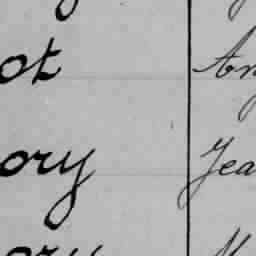 ot An
ory Jea
ory M